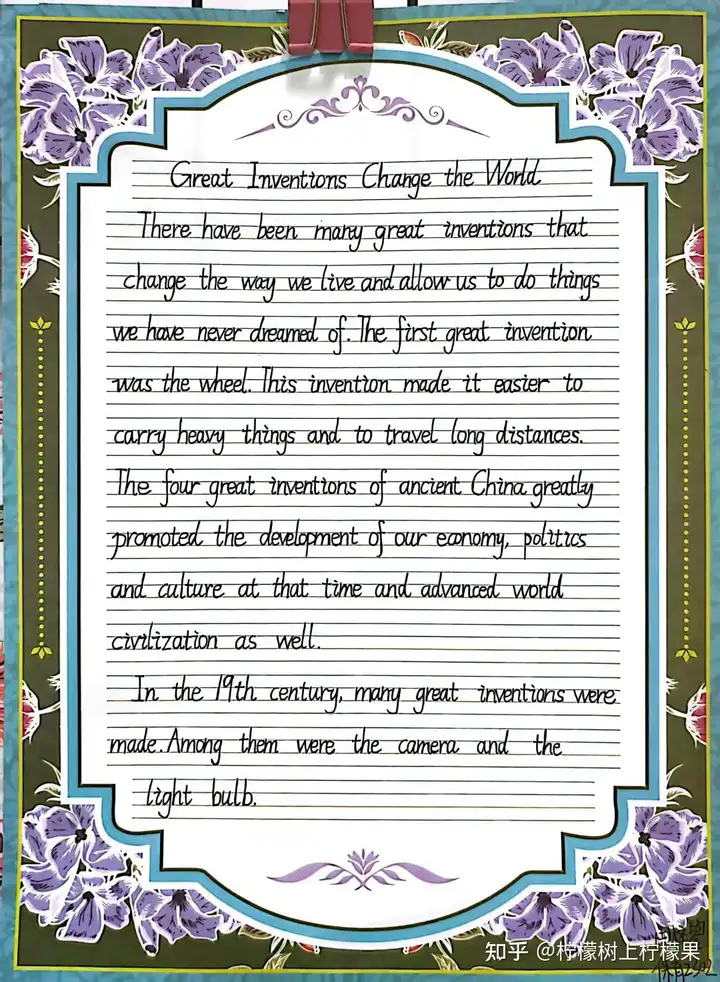 Great Inventions Change the World
There have been many great inventions that
change the way we live and allow us to do things
we have never dreamed of. The first great invention
was the wheel. This invention made it easier to
carry heavy things and to travel long distances.
The four great inventions of ancient China greatly
promoted the development of our economy, politics
and culture at that time and advanced world
civilization as well.
In the 19th century, many great inventions were
made. Among them were the camera and the
light bulb.
知乎 @柠檬树上柠檬果